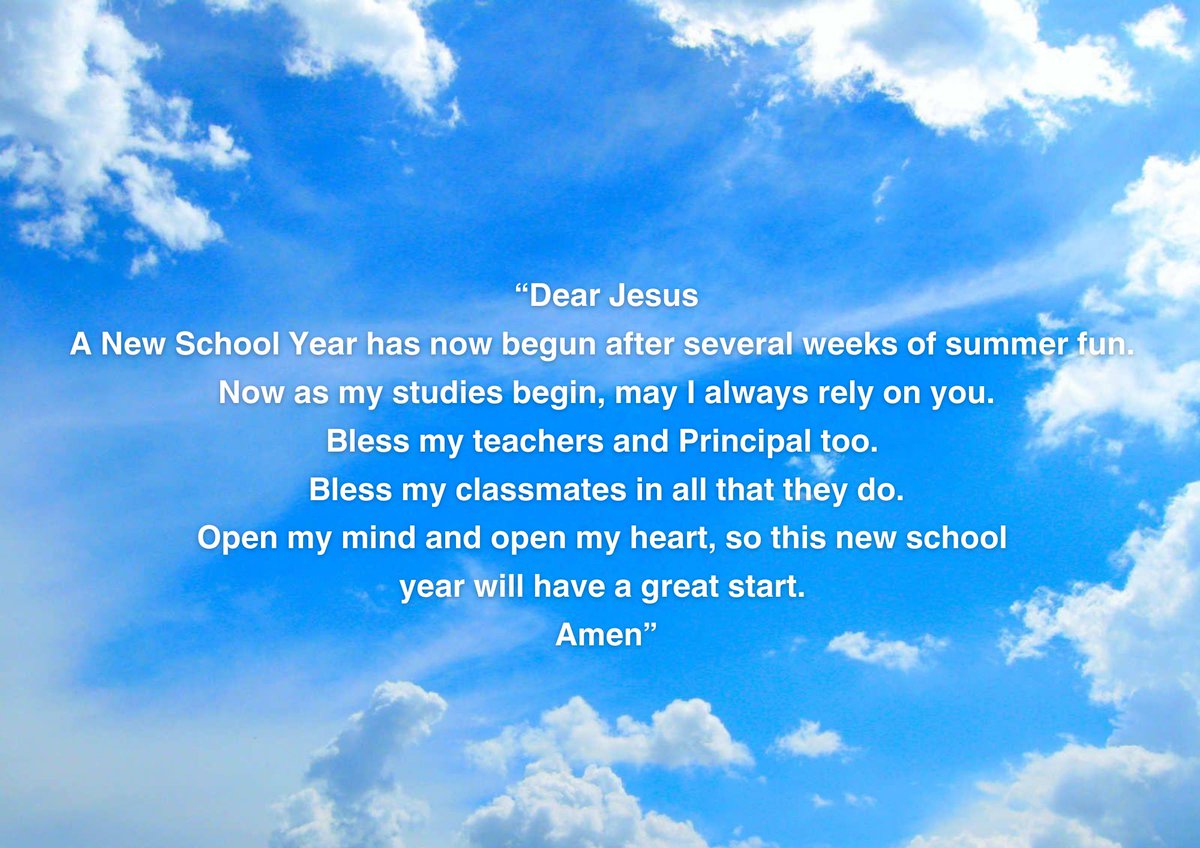 “Dear Jesus
A New School Year has now begun after several weeks of summer fun.
Now as my studies begin, may I always rely on you.
Bless my teachers and Principal too.
Bless my classmates in all that they do.
Open my mind and open my heart, so this new school
year will have a great start.
Amen”